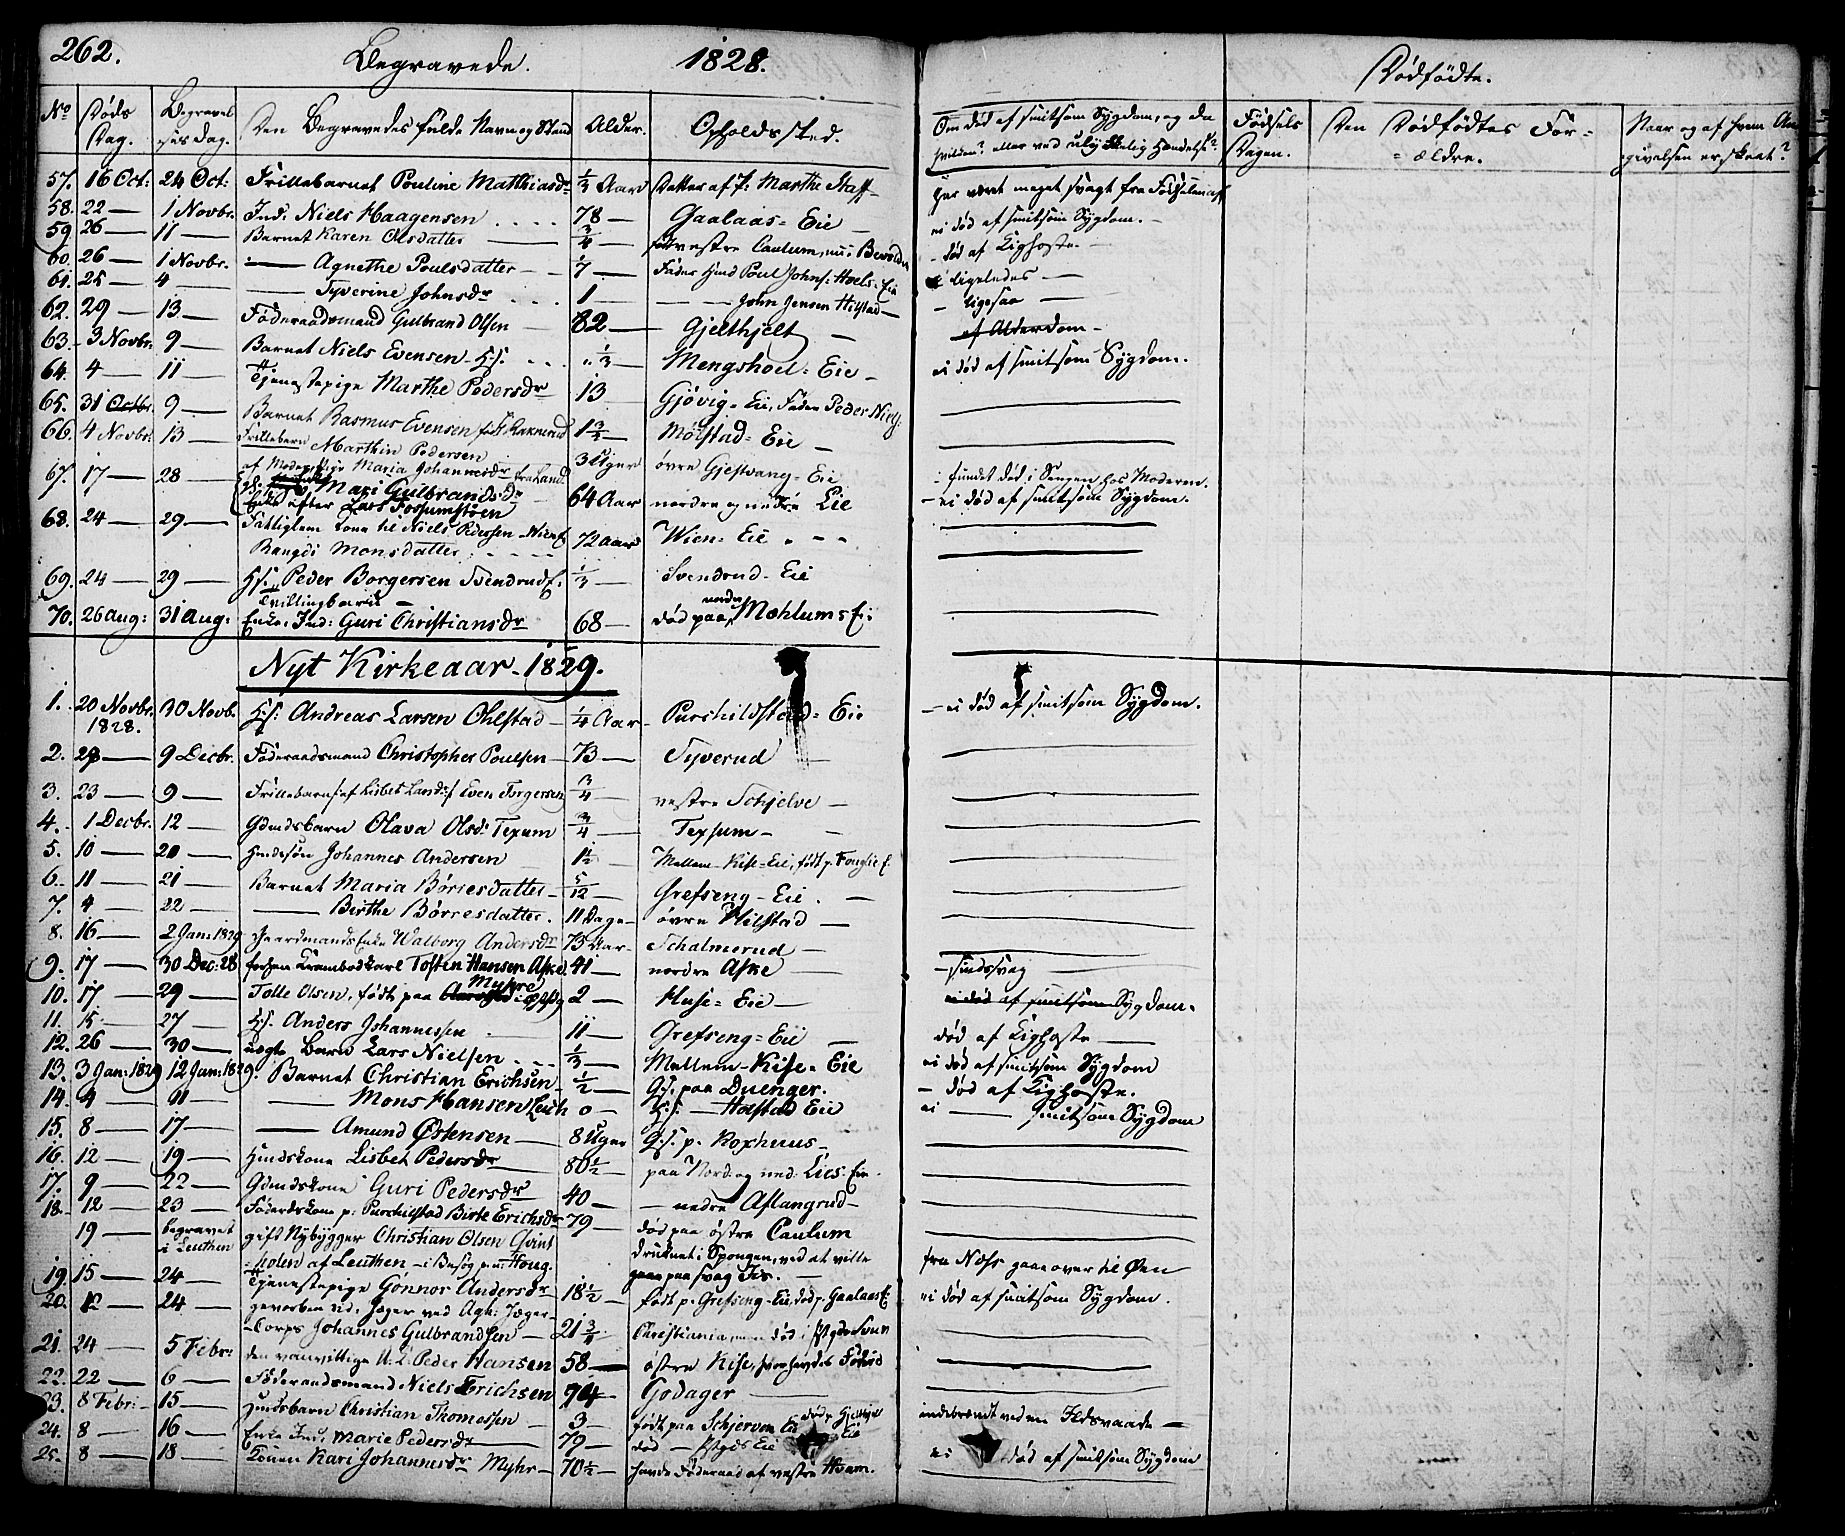 262. Begravede. 1828. Dødfødte.
No Døds Dag. Begravelsesdag. Den Begravedes fulde Navn og Stand Alder. Opholdssted. Om død af smitsom Sygdom, og da hvilken? eller ved ulykkelig Hændelse? Fødsels Dagen. Den Dødfødtes Forældre. Naar og af hvem Angivelsen er skeet?
57. 16 Oct: 24 Oct: Frillebarnet Pouline Matthiasdr 1/3 Aar Datter af P: Marthe Staff har været meget svagt fra Fødselen af
58. 22 — 1 Novbr. Ind: Niels Haagensen 78 — Gaalaas-Eie — ei død af smitsom Sygdom. —
59 26 — 11 — Barnet Karen Olsdatter 3/4 — vestre Caulum, — død af Kighoste. —
60. 26 — 1 Novbr. — Agnethe Poulsdatter 7 — Fader Hmd Poul Johns: Hoels-Eie ligeledes —
61. 25 — 4 — — Syverine Johnsdr 1 — — John Jensen Hilstad — — ligesaa —
62. 29 — 13 — Føderaadsmand Gulbrand Olsen — 82 — Gjelthjelt — af Alderdom —
63. 3 Novbr: 9 — Barnet Niels Evensen Hs. 1/3 — Mengshoel-Eie — ei død af smitsom Sygdom.
64. 4 — 11 — Tjenestepige Marthe Pedersdr 13 Gjövig-Eie, Fader Peder Niels:
65. 31 Octbr. 9 — Barnet Rasmus Evensen 1 3/4 — Mølstad-Eie —
66. 4 Novbr: 13 — Frillebarn Marthin Pedersen
af Moder Pige Maria Johannesdr fra Land 3 Uger øvre Gjestvang-Eie fundet død i Sengen hos Moderen.
67. 17 — 28 — Mari Gulbrandsdr
Enke efter Lars Fossumstuen 64 Aar nordre og nedre Lie — ei død af smitsom Sygdom.
68. 24 — 29 — Fattiglem Kone til Niels Pedersen Wien E
Rangdi Monsdatter 72 Aar Wien-Eie
69. 24 — 29 — Hs. Peder Borgersen Svendrud E. 1/3 — Svendrud-Eie
Tvillingbarn —
70. 26 Aug: 31 Aug: Enke, Ind: Guri Christiansdr 68 — død paa nordre Mæhlums Ei:
Nyt Kirkeaar 1829.
1. 20 Novbr. 1828. 30 Novb. Hs: Andreas Larsen Ohlstad 1/4 Aar Purskildstad-Eie — ei død af smitsom Sygdom.
2. 29 — 9 Decbr. Føderaadsmand Christopher Poulsen 73 — Syverud —
3. 23 — 9 — Frillebarn af Lisbet Larsdr Even Torgersen 3/4 vestre Schjelve —
4. 1 Decbr. 12 — Gdmdsbarn Olava Olsd: Texum 3/4 — Texsum —
5. 10 — 20 — Hmdssøn Johannes Andersen 1 1/2 Mellem-Kise-Eie, født p. Fonglie E.
6. 11 — 21 — Barnet Maria Børresdatter 5/12 — Grefseng-Eie. —
7. 4 — 22 — — Birthe Børresdatter. 11 Dage øvre Hilstad —
8. 16 — 2 Jan: 1829 Gaardmands Enke Walborg Andersdr 73 Aar Schalmerud —
9. 17 — 30 Dec: 28 forhen Krambodkarl Tosten Hansen Aske 41 — nordre Aske — — sindssvag
10. 17 — 29 — Tolle Olsen, født paa Myhre 2 — Huse-Eie — ei død af smitsom Sygdom.
11. 15 — 27 — Hs. Anders Johannessen 11 — Grefseng-Eie død af Kighoste —
12. 26 — 30 — uægte Barn Lars Nielsen 1/3 — Mellem-Kise-Eie ei død af smitsom Sygdom
13. 3 Jan: 1829 12 Jan: 1829. Barnet Christian Erichsen 1/2 — Gs: paa Duenger. — død af Kighoste.
14. 4 — 11 — — Mons Hansen 0 — Hs: — Holstad Eie ei — smitsom Sygdom
15. 8 — 17 — — Amund Østensen — 8 Uger Gs. p. Roxhuus —
16. 12 — 19 — Hmdskone Lisbet Pedersdr 80 1/2 — paa Nord- og ned: Lies-Eie.
17. 9 — 22 — Gdmdskone Guri Pedersdr 40 — — nedre Aslangrud —
18. 12 — 23 — Føderdskone p: Purschilstad Birte Erichsdr 79 — død paa østre Caulum
19 — begravet i Leuthen gift Nybygger Christian Olsen Qvintholen af Leuthen — i Besøg paa Houg druknet i Spongen, ved at ville gaae paa svag Iis. — fra Næss gaae over til Øen
19. 15 — 24 — Tjenestepige Gønnor Andersdr 18 1/2 — født p. Grefseng-Eie, død p. Gaalaas E: ei død af smitsom Sygdom.
20. 12 — 24 — gevorben nid. Jæger ved Agh: Jægercorps Johannes Gulbrandsen — 21 3/4 Christiania, men død i
21. 24 — 5 Febr: den vanvittige U.K: Peder Hansen 58 — østre Kise,
22. 22 — 6 — Føderaadsmand Niels Erichsen 74 Godager —
23. 8 Febr: 15 — Hmdsbarn Christian Thomassen — 3 — født paa Schjerven Eie død p. Hjelthjelt Eie indebrændt ved en Ildsvaade —
24. 8 — 16 — Enke Ind: Marie Pedersdr 79 — død — Eie ei død af smitsom Sygdom
25. 8 — 18 — Konen Kari Johannesdr Myhr 70 1/2 — havde Føderaad af vestre Hvam.